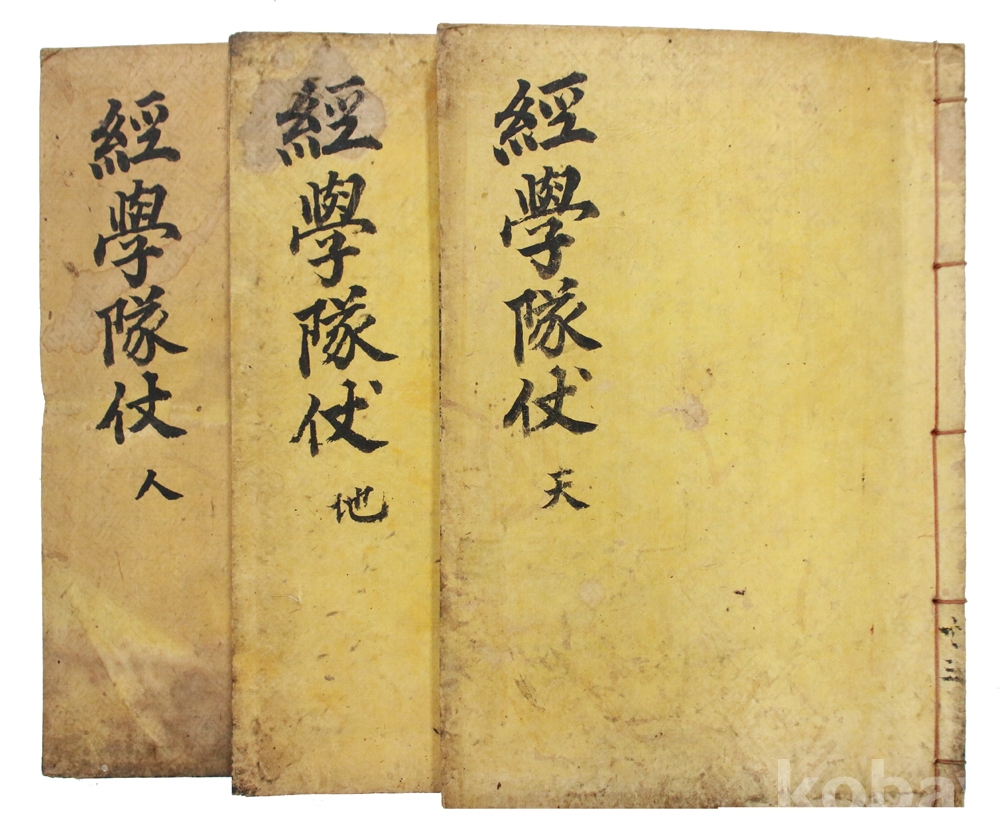 經學隊仗 天
經學隊仗 地
經學隊仗 人
共三
koba